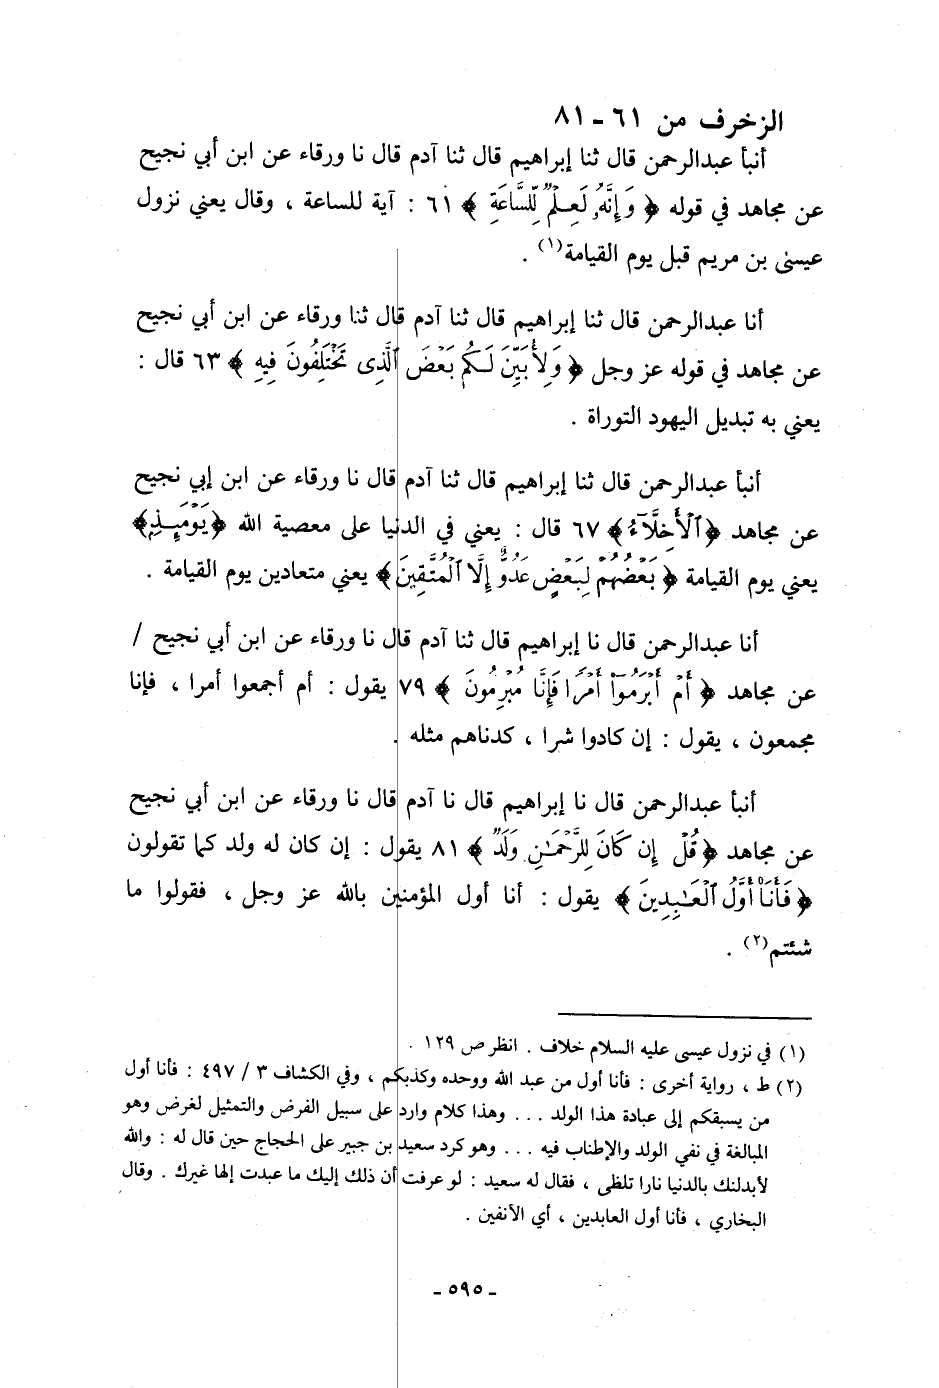 الزخرف من ٦١ - ٨١
أنبأ عبدالرحمن قال ثنا إبراهيم قال ثنا آدم قال نا ورقاء عن ابن أبي نجيح
عن مجاهد في قوله ﴿ وَإِنَّهُۥ لَعِلۡمٞ لِّلسَّاعَةِ ﴾ ٦١ : آية للساعة ، وقال يعني نزول
عيسى بن مريم قبل يوم القيامة(١) .
أنا عبدالرحمن قال ثنا إبراهيم قال ثنا آدم قال ثنا ورقاء عن ابن أبي نجيح
عن مجاهد في قوله عز وجل ﴿ وَلِأُبَيِّنَ لَكُم بَعۡضَ ٱلَّذِى تَخۡتَلِفُونَ فِيهِ ﴾ ٦٣ قال :
يعني به تبديل اليهود التوراة .
أنبأ عبدالرحمن قال ثنا إبراهيم قال ثنا آدم قال نا ورقاء عن ابن إبي نجيح
عن مجاهد ﴿ٱلۡأَخِلَّآءُ﴾ ٦٧ قال : يعني في الدنيا على معصية الله ﴿يَوۡمَئِذِۭ﴾
يعني يوم القيامة ﴿ بَعۡضُهُمۡ لِبَعۡضٍ عَدُوٌّ إِلَّا ٱلۡمُتَّقِينَ﴾ يعني متعادين يوم القيامة .
أنا عبدالرحمن قال نا إبراهيم قال ثنا آدم قال نا ورقاء عن ابن أبي نجيح /
عن مجاهد ﴿ أَمۡ أَبۡرَمُوٓاْ أَمۡرٗا فَإِنَّا مُبۡرِمُونَ ﴾ ٧٩ يقول : أم أجمعوا أمرا ، فإنا
مجمعون ، يقول : إن كادوا شرا ، كدناهم مثله .
أنبأ عبدالرحمن قال نا إبراهيم قال نا آدم قال نا ورقاء عن ابن أبي نجيح
عن مجاهد ﴿قُلۡ إِن كَانَ لِلرَّحۡمَٰنِ وَلَدٞ ﴾ ٨١ يقول : إن كان له ولد كما تقولون
﴿ فَأَنَا۠ أَوَّلُ ٱلۡعَٰبِدِينَ ﴾ يقول : أنا أول المؤمنين بالله عز وجل ، فقولوا ما
شئتم(٢) .
(١) في نزول عيسى عليه السلام خلاف . انظر ص ١٢٩ .
(٢) ط ، رواية أخرى : فأنا أول من عبد الله ووحده وكذبكم ، وفي الكشاف ٣ / ٤٩٧ : فأنا أول
من يسبقكم إلى عبادة هذا الولد ... وهذا كلام وارد على سبيل الفرض والتمثيل لغرض وهو
المبالغة في نفي الولد والإطناب فيه ... وهو كرد سعيد بن جبير على الحجاج حين قال له : والله
لأبدلنك بالدنيا نارا تلظى ، فقال له سعيد : لو عرفت أن ذلك إليك ما عبدت إلها غيرك . وقال
البخاري ، فأنا أول العابدين ، أي الآنفين .
- ٥٩٥ -